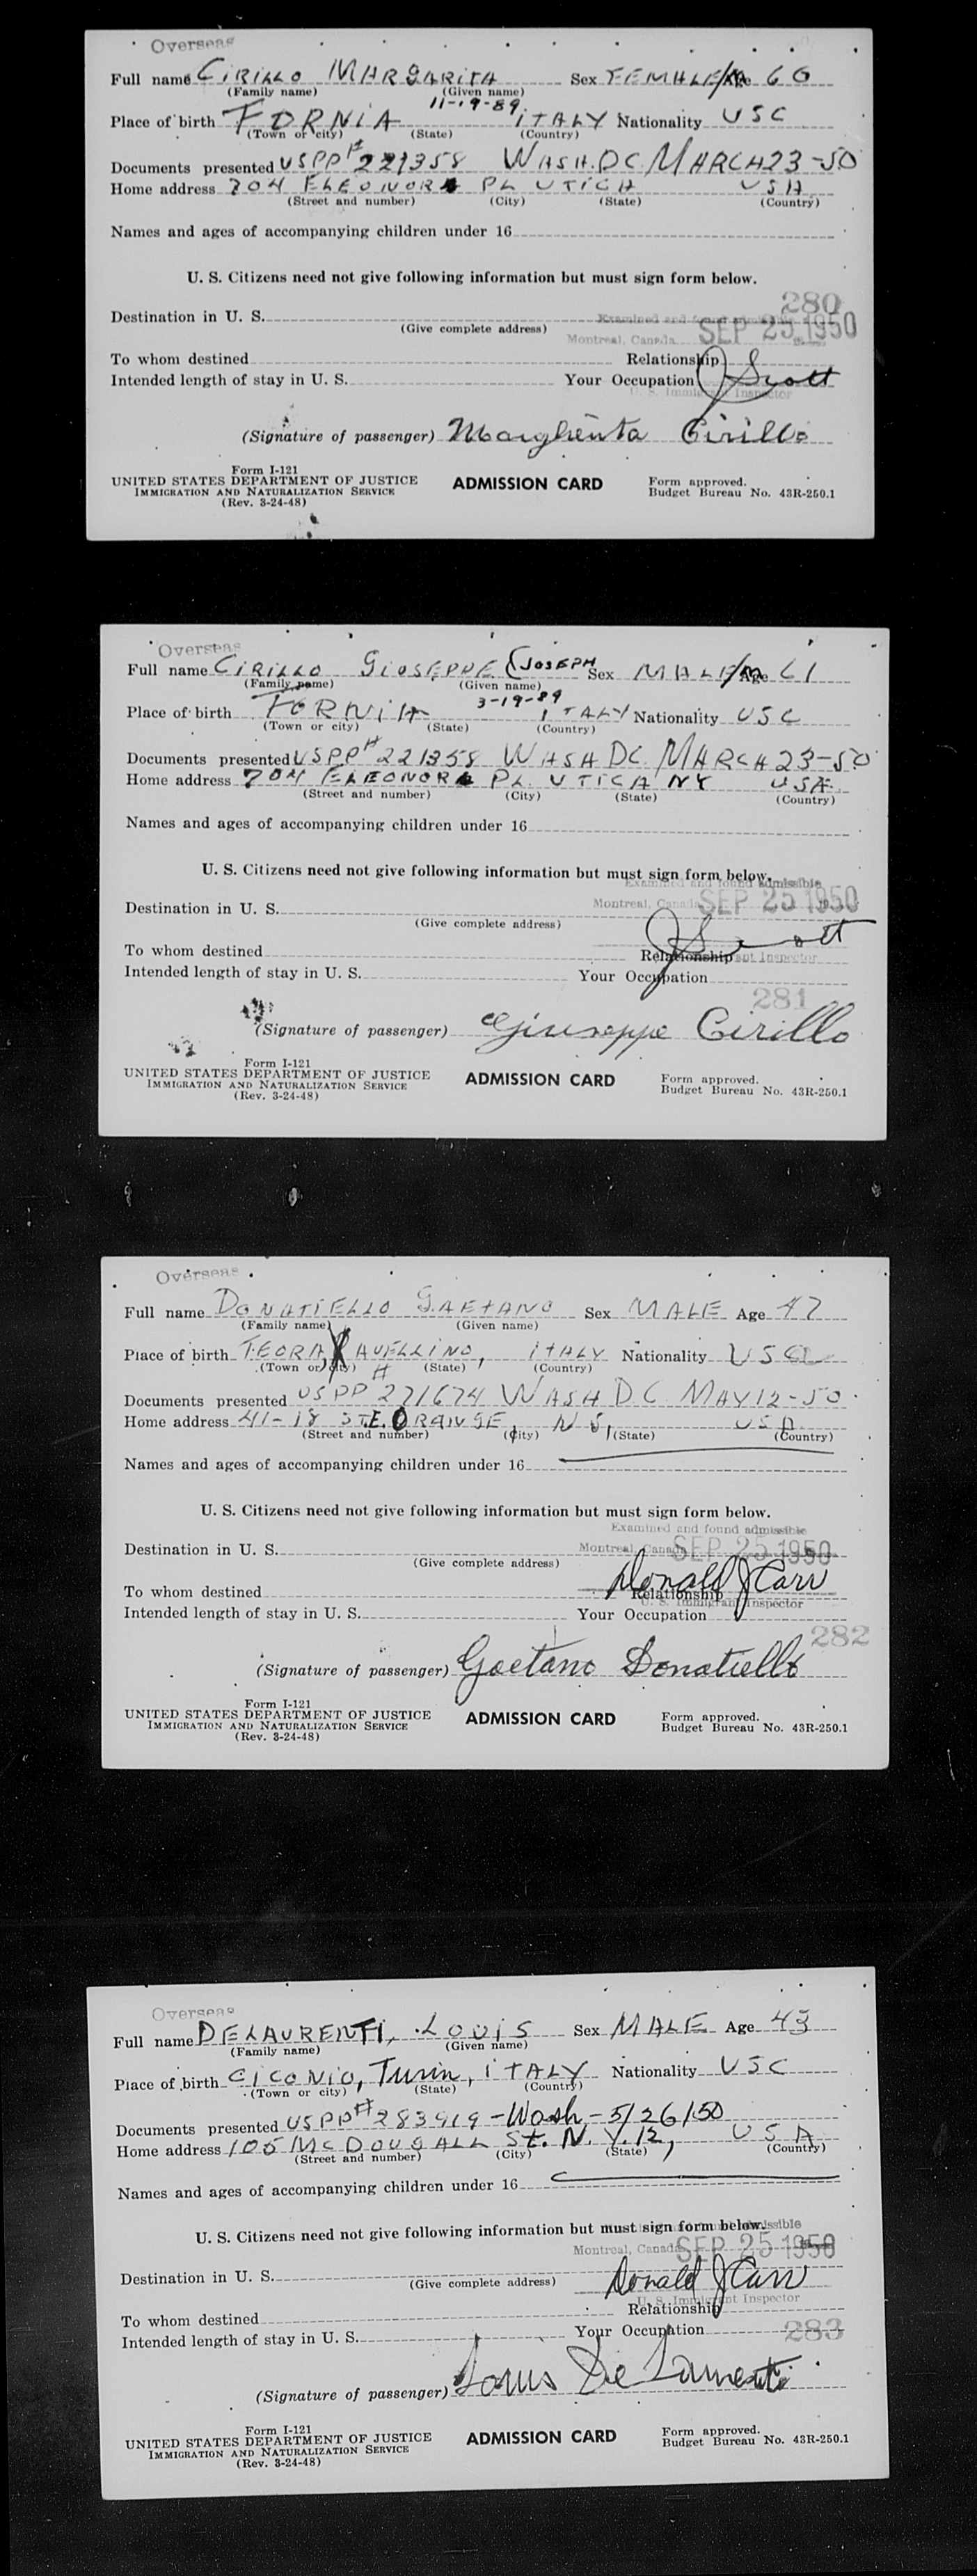 Overseas
Full name CIRILLO MARGARITA Sex FEMALE/M Age 60
(Family name) (Given name)
11-19-89
Place of birth FORNIA ITALY Nationality USC
(Town or city) (State) (Country)
Documents presented USPP# 221358 WASH.DC. MARCH 23-50
Home address 704 ELEONORA PL UTICA USA
(Street and number) (City) (State) (Country)
Names and ages of accompanying children under 16
U. S. Citizens need not give following information but must sign form below.
280
Destination in U. S. Examined and found admissible
(Give complete address) Montreal, Canada SEP 25 1950
To whom destined Relationship
Intended length of stay in U. S. Your Occupation J Scott
U. S. Immigrant Inspector
(Signature of passenger) Margherita Cirillo
Form I-121
UNITED STATES DEPARTMENT OF JUSTICE
IMMIGRATION AND NATURALIZATION SERVICE
(Rev. 3-24-48)
ADMISSION CARD
Form approved.
Budget Bureau No. 43R-250.1
Overseas
Full name CIRILLO GIUSEPPE (JOSEPH Sex MALE/M Age 61
(Family name) (Given name)
3-19-89
Place of birth FORNIA ITALY Nationality USC
(Town or city) (State) (Country)
Documents presented USPP# 221358 WASH DC. MARCH 23-50
Home address 704 ELEONORA PL. UTICA NY USA.
(Street and number) (City) (State) (Country)
Names and ages of accompanying children under 16
U. S. Citizens need not give following information but must sign form below.
Examined and found admissible
Destination in U. S. Montreal, Canada SEP 25 1950
(Give complete address)
J Scott
To whom destined Relationship
Immigrant Inspector
Intended length of stay in U. S. Your Occupation
281
(Signature of passenger) Giuseppe Cirillo
Form I-121
UNITED STATES DEPARTMENT OF JUSTICE
IMMIGRATION AND NATURALIZATION SERVICE
(Rev. 3-24-48)
ADMISSION CARD
Form approved.
Budget Bureau No. 43R-250.1
Overseas
Full name DONATIELLO GAETANO Sex MALE Age 47
(Family name) (Given name)
Place of birth TEORA, AVELLINO, ITALY Nationality USC
(Town or city) (State) (Country)
Documents presented USPP# 271674 WASH DC MAY 12-50
Home address 41-18 ST. E. ORANGE, N J, USA
(Street and number) (City) (State) (Country)
Names and ages of accompanying children under 16
U. S. Citizens need not give following information but must sign form below.
Examined and found admissible
Destination in U. S. Montreal, Canada SEP 25 1950
(Give complete address)
Donald J Carr
To whom destined Relationship
U. S. Immigrant Inspector
Intended length of stay in U. S. Your Occupation
282
(Signature of passenger) Gaetano Donatiello
Form I-121
UNITED STATES DEPARTMENT OF JUSTICE
IMMIGRATION AND NATURALIZATION SERVICE
(Rev. 3-24-48)
ADMISSION CARD
Form approved.
Budget Bureau No. 43R-250.1
Overseas
Full name DELAURENTI, LOUIS Sex MALE Age 43
(Family name) (Given name)
Place of birth CICONIO, Turin, ITALY Nationality USC
(Town or city) (State) (Country)
Documents presented USPP# 283919 - Wash - 5/26/50
Home address 105 MCDOUGALL St. N. Y. 12, USA
(Street and number) (City) (State) (Country)
Names and ages of accompanying children under 16
U. S. Citizens need not give following information but must sign form below.
admissible
Montreal, Canada SEP 25 1950
Destination in U. S.
(Give complete address)
Donald J Carr
U. S. Immigrant Inspector
To whom destined Relationship
Intended length of stay in U. S. Your Occupation
283
(Signature of passenger) Louis De Laurenti
Form I-121
UNITED STATES DEPARTMENT OF JUSTICE
IMMIGRATION AND NATURALIZATION SERVICE
(Rev. 3-24-48)
ADMISSION CARD
Form approved.
Budget Bureau No. 43R-250.1